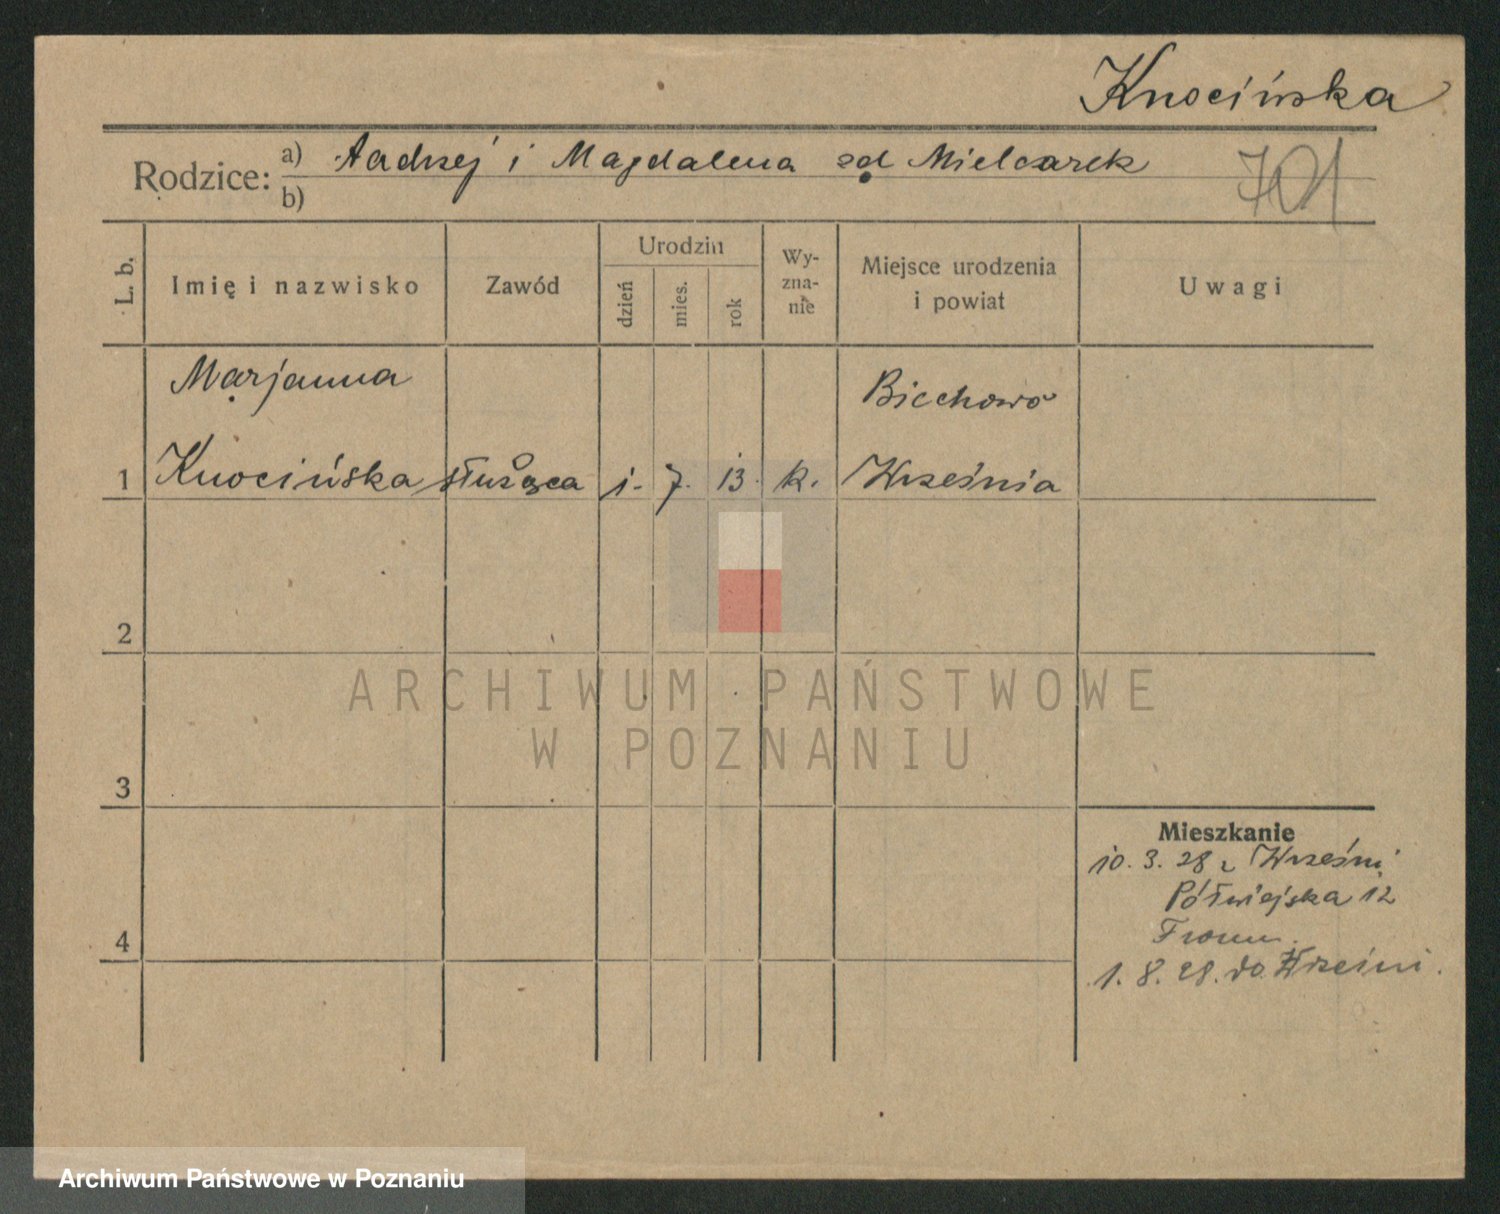 Knocińska
Rodzice: a) Andrzej i Magdalena zd Mielcarek
b)
701
L. b.
Imię i nazwisko
Zawód
Urodzin
dzień
mies.
rok
Wy-
zna-
nie
Miejsce urodzenia
i powiat
Uwagi
Marjanna
Biechowo
1 Knocińska służąca 1. 7. 13. k. Września
2
ARCHIWUM PAŃSTWOWE
W POZNANIU
3
Mieszkanie
10. 3. 28 z Wrześni
Półwiejska 12
4
1. 8. 28. do Wrześni.
Archiwum Państwowe w Poznaniu